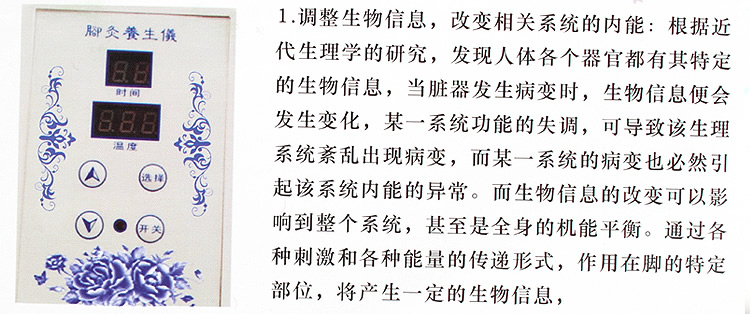 腳灸養生儀
时间
温度
选择
开关
1.调整生物信息，改变相关系统的内能：根据近
代生理学的研究，发现人体各个器官都有其特定
的生物信息，当脏器发生病变时，生物信息便会
发生变化，某一系统功能的失调，可导致该生理
系统紊乱出现病变，而某一系统的病变也必然引
起该系统内能的异常。而生物信息的改变可以影
响到整个系统，甚至是全身的机能平衡。通过各
种刺激和各种能量的传递形式，作用在脚的特定
部位，将产生一定的生物信息，